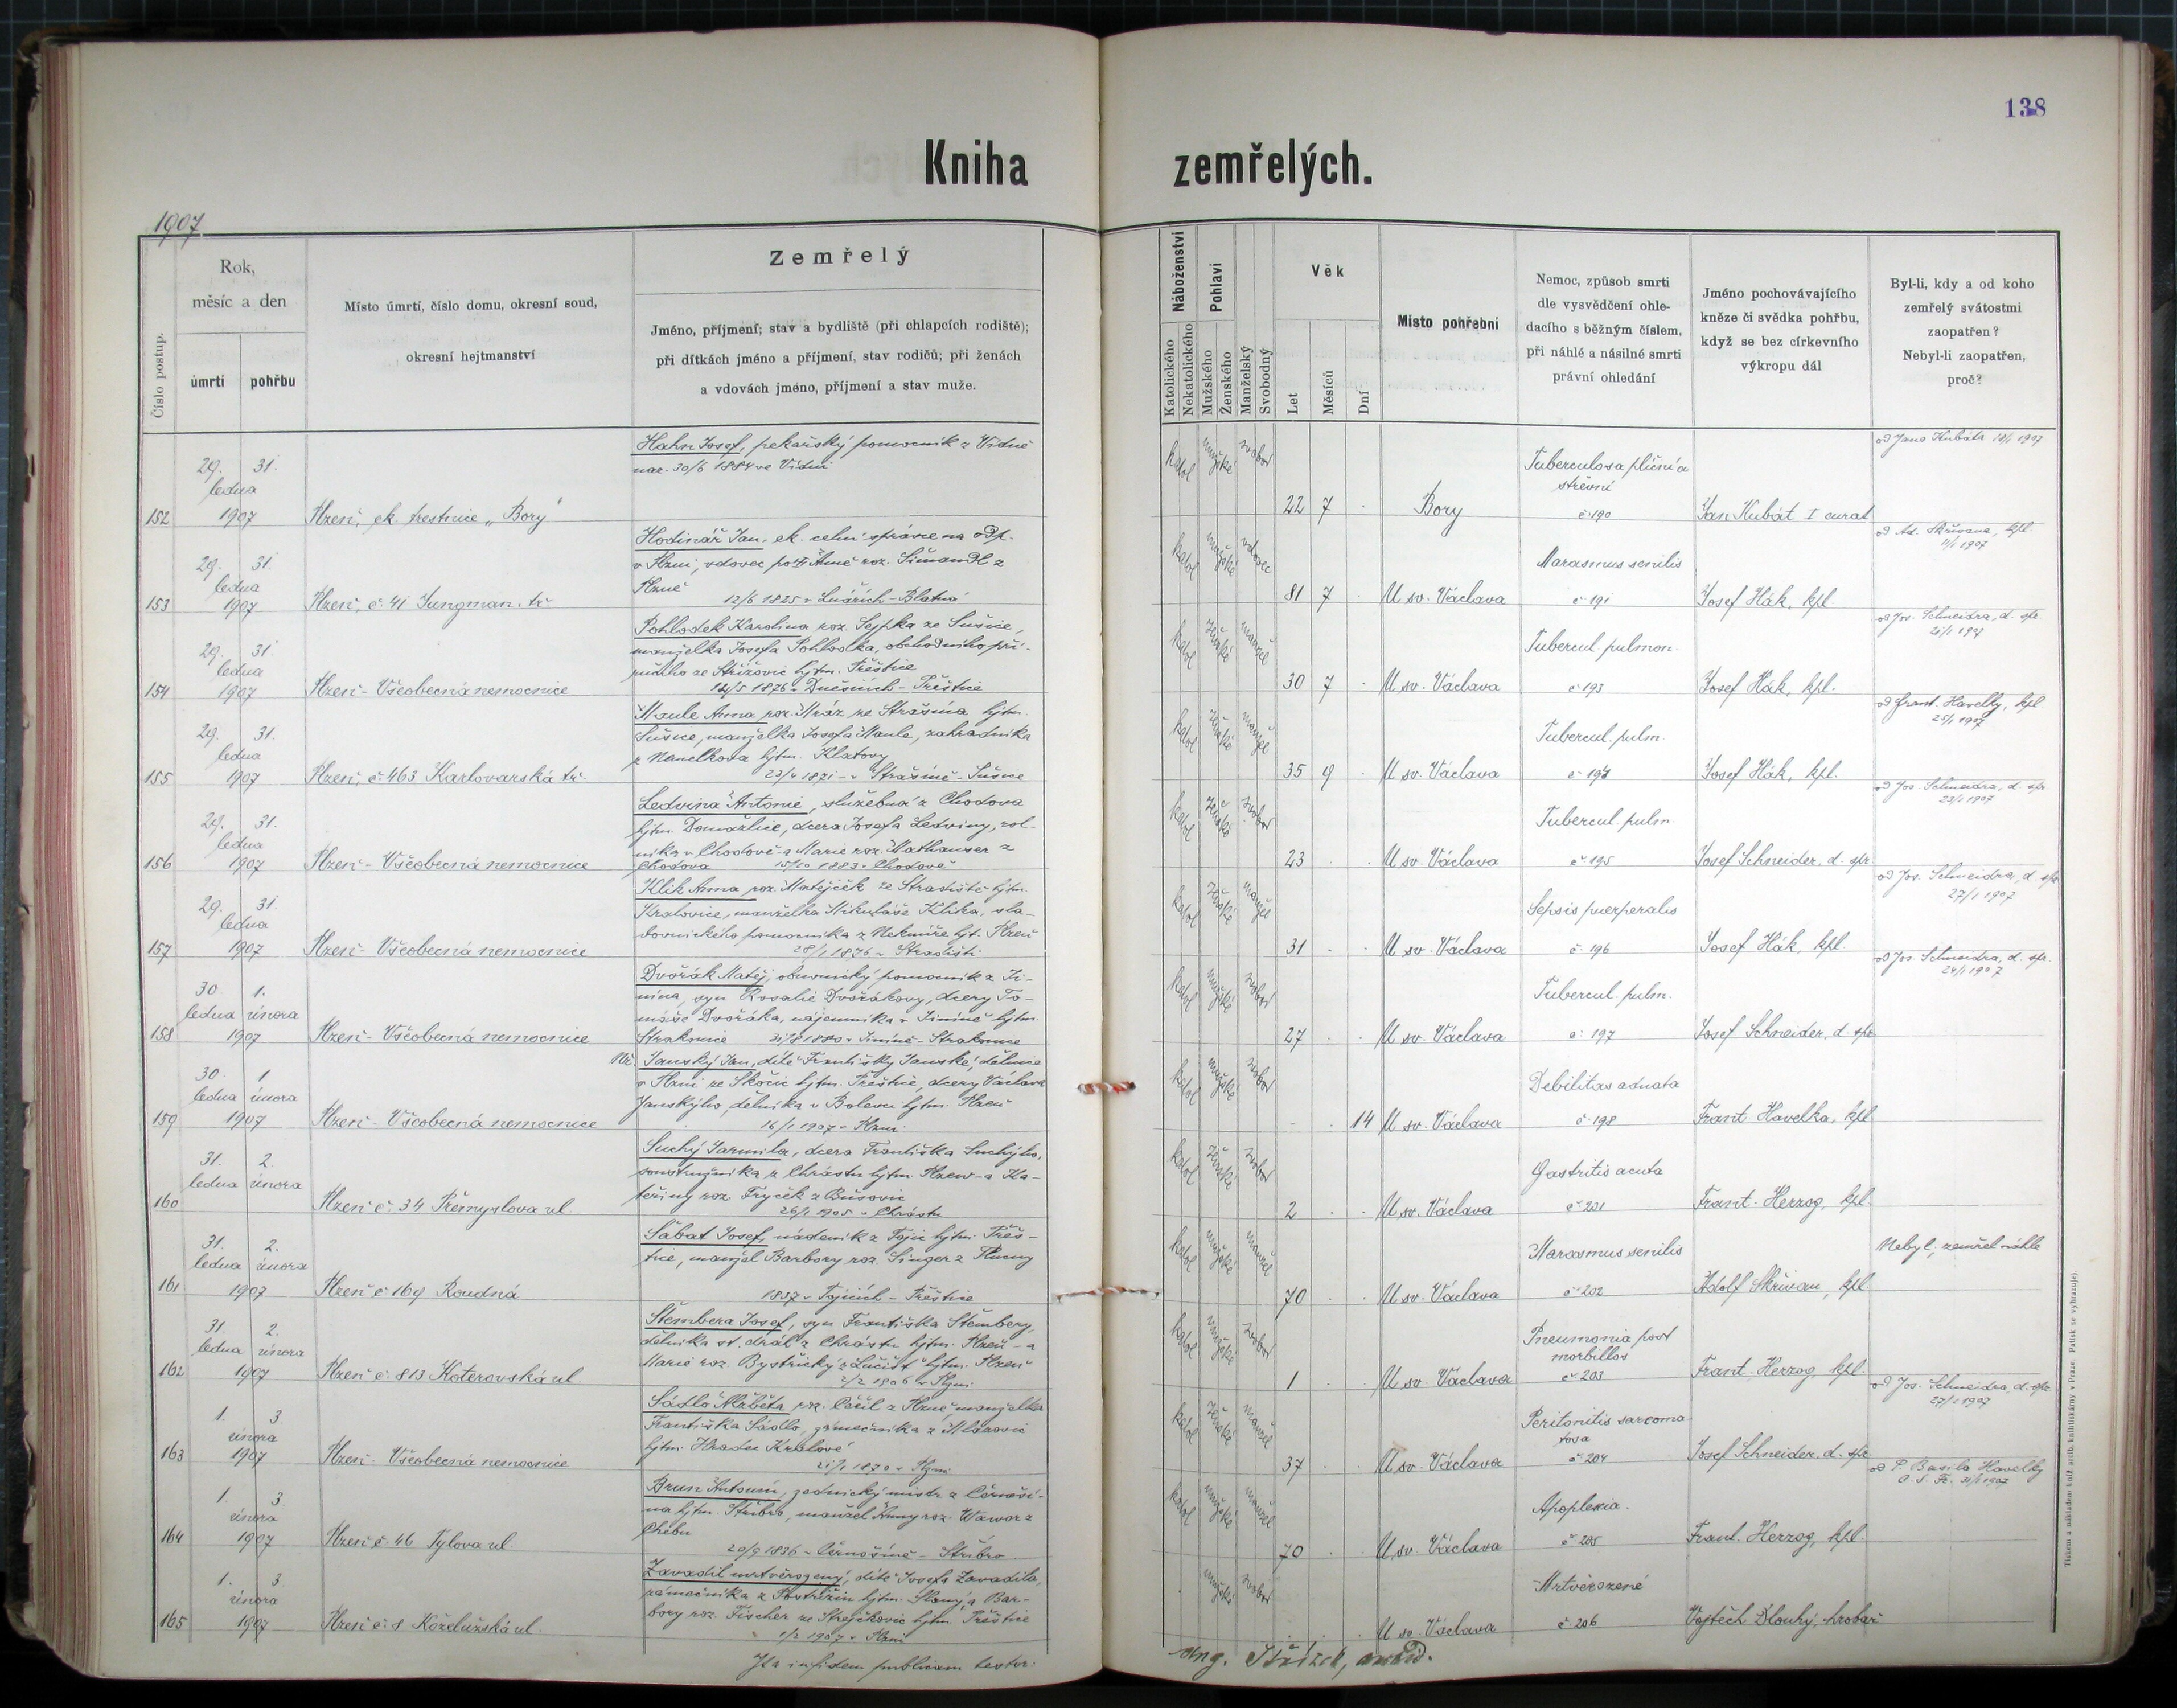 138
Kniha zemřelých.
1907
Číslo postup.
Rok,
měsíc a den
úmrtí
pohřbu
Místo úmrtí, číslo domu, okresní soud,
okresní hejtmanství
Zemřelý
Jméno, příjmení; stav a bydliště (při chlapcích rodiště);
při dítkách jméno a příjmení, stav rodičů; při ženách
a vdovách jméno, příjmení a stav muže.
Náboženství
Katolického
Nekatolického
Pohlaví
Mužského
Ženského
Manželský
Svobodný
Věk
Let
Měsíců
Dní
Místo pohřební
Nemoc, způsob smrti
dle vysvědčení ohle-
dacího s běžným číslem,
při náhlé a násilné smrti
právní ohledání
Jméno pochovávajícího
kněze či svědka pohřbu,
když se bez církevního
výkropu dál
Byl-li, kdy a od koho
zemřelý svátostmi
zaopatřen?
Nebyl-li zaopatřen,
proč?
152
29. ledna 1907
31.
Plzeň, ck. trestnice „Bory"
Hahn Josef, pekařský pomocník z Vídně
nar. 30/6 1884 ve Vídni
katol
mužské
svobod
22 7
Bory
Tuberculosa plicní a
střevní
č. 190
Jan Kubát I curat
od Jana Kubáta
1907
153
29. ledna 1907
31.
Plzeň, č. 41 Jungman. tř.
Hodinář Jan, ck. celní správce na odp.
v Plzni, vdovec po † Anně roz. Šimandl z
Plzně
12/6 1825 v Lnářích - Blatná
katol
mužské
vdovec
81 7
U sv. Václava
Marasmus senilis
č 191
Josef Hák, kpl.
od Ad. Skřivana, kpl.
1907
154
29. ledna 1907
31.
Plzeň - Všeobecná nemocnice
Pohlodek Karolina roz. Sejpka ze Sušice,
manželka Josefa Pohlodka, obchodního pří-
ručího ze Střížovic hjtm. Přeštice
1876 v Dnešicích - Přeštice
katol
ženské
manžel
30 7
U sv. Václava
Tubercul pulmon.
č 193
Josef Hák, kpl.
od Jos. Schneidra, d. spr.
21/1 1907
155
29. ledna 1907
31.
Plzeň, č. 463 Karlovarská tř.
Maule Anna roz. Mráz ze Strašína hjtm.
Sušice, manželka Josefa Maule, zahradníka
z Nanelkova hjtm. Klatovy
1871 v Strašíně - Sušice
katol
ženské
manžel
35 9
U sv. Václava
Tubercul. pulm.
č 194
Josef Hák, kpl.
od Frant. Havelky, kpl
25/1 1907
156
29. ledna 1907
31.
Plzeň - Všeobecná nemocnice
Ledvina Antonie, služebná z Chodova
hjtm. Domažlice, dcera Josefa Ledviny, rol-
níka v Chodově a Marie roz. Mathauser z
Chodova 15/10 1883 v Chodově
katol
ženské
svobod
23
U sv. Václava
Tubercul. pulm
č 195
Josef Schneider, d. spr
od Jos. Schneidra, d. spr
23/1 1907
157
29. ledna 1907
31.
Plzeň - Všeobecná nemocnice
Klik Anna roz. Matějček ze Stradiště hjtm.
Kralovice, manželka Mikuláše Klika, sla-
dovnického pomocníka z Nekmíře hjt. Plzeň
28/1 1876 v Stradišti
katol
ženské
manžel
31
U sv. Václava
Sepsis puerperalis
č. 196
Josef Hák, kpl.
od Jos. Schneidra, d. spr
27/1 1907
158
30 ledna 1907
1. února
Plzeň - Všeobecná nemocnice
Dvořák Matěj, obuvnický pomocník z Ji-
nína, syn Rosalie Dvořákovy, dcery To-
máše Dvořáka, nájemníka v Jiníně hjtm.
Strakonice 31/8 1880 v Jiníně - Strakonice
katol
mužské
svobod
27
U sv. Václava
Tubercul. pulm.
č. 197
Josef Schneider, d spr
od Jos. Schneidra, d. spr.
24/1 1907
159
30. ledna 1907
1 února
Plzeň - Všeobecná nemocnice
Janský Jan, dítě Františky Janské, dělnice
v Plzni ze Skočic hjtm. Přeštice, dcery Václava
Janskýho, dělníka v Bolevci hjtm. Plzeň
16/1 1907 v Plzni
katol
mužské
svobod
14
U sv. Václava
Debilitas adnata
č 198
Frant Havelka, kpl
160
31. ledna
2. února
Plzeň č. 34 Přemyslova ul
Suchý Jarmila, dcera Františka Suchýho,
soustružníka z Chrástu hjtm. Plzeň a Ka-
teřiny roz. Fryček z Bušovic
26/1 1905 v Chrástu
katol
ženské
svobod
2
U sv. Václava
Gastritis acuta
č 201
Frant. Herzog, kpl.
161
31. ledna 1907
2. února
Plzeň č 169 Roudná
Šabat Josef, nádeník z Tojic hjtm. Přeš-
tice, manžel Barbory roz. Singer z
1837 v Tojicích - Přeštice
katol
mužské
manžel
70
U sv. Václava
Marasmus senilis
č. 202
Adolf Skřivan, kpl
Nebyl, zemřel náhle
162
31. ledna 1907
2. února
Plzeň č. 813 Koterovská ul.
Štembera Josef, syn Františka Štembery,
dělníka st. dráh z Chrástu hjtm. Plzeň - a
Marie roz. Bystřický z hjtm. Plzeň
2/2 1906 v Plzni
katol
mužské
svobod
1
U sv. Václava
Pneumonia post
morbillos
č. 203
Frant. Herzog, kpl.
163
1. února 1907
3.
Plzeň - Všeobecná nemocnice
Sádlo Alžběta roz. Cécil z Plzně, manželka
Františka Sádlo, zámečníka z
hjtm. Hradec Králové
1870 v Plzni
katol
ženské
manžel
37
U sv. Václava
Peritonitis sarcoma-
tosa
č 204
Josef Schneider, d. spr
od Jos. Schneidra, d. spr.
27/1 1907
164
1. února 1907
3.
Plzeň č. 46 Tylova ul
Brun Antonín, zednický mistr z Černoší-
na hjtm. Stříbro, manžel Anny roz. Wawor z
Chebu
20/9 1836 v Černošíně - Stříbro
katol
mužské
manžel
70
U sv. Václava
Apoplexia.
č 205
Frant. Herzog, kpl.
od P. Basila Havelky
O. S. Fr. 31/1 1907
165
1. února 1907
3
Plzeň č. 8 Koželužská ul.
Zavadil mrtvěrozený, dítě Josefa Zavadila,
zámečníka z Postřižín hjtm. Slaný, a Bar-
bory roz. Fischer ze Strejčkovic hjtm. Přeštice
1/2 1907 v Plzni
mužské
svobod
U sv. Václava
Mrtvěrozené
č. 206
Vojtěch Dlouhý, hrobař
Ita in fidem publicam testor:
Tiskem a nákladem kníž. arcib. knihtiskárny v Praze. Patisk se vyhrazuje.